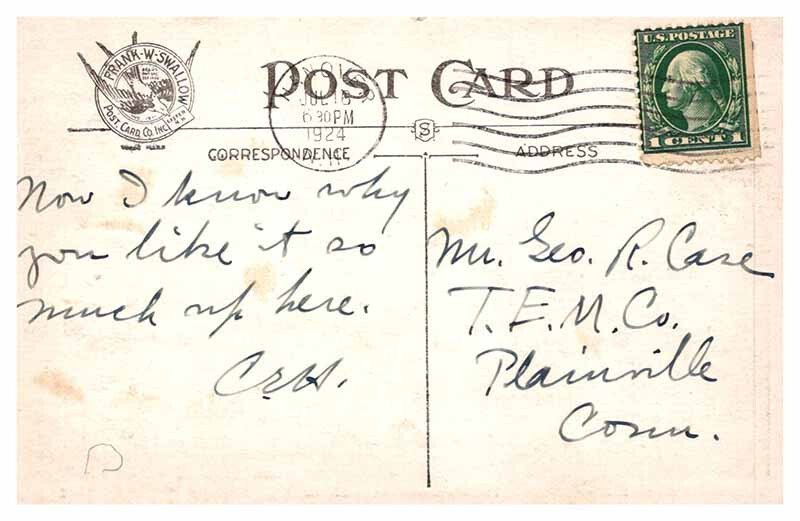 FRANK-W-SWALLOW
POST CARD CO. INC
POST CARD
6 30PM
1924
S
U.S. POSTAGE
1 CENT 1
CORRESPONDENCE
ADDRESS
Now I know why
you like it so
much up here.
CEH.
Mr. Geo. R. Case
T. E. M. Co.
Plainville
Conn.